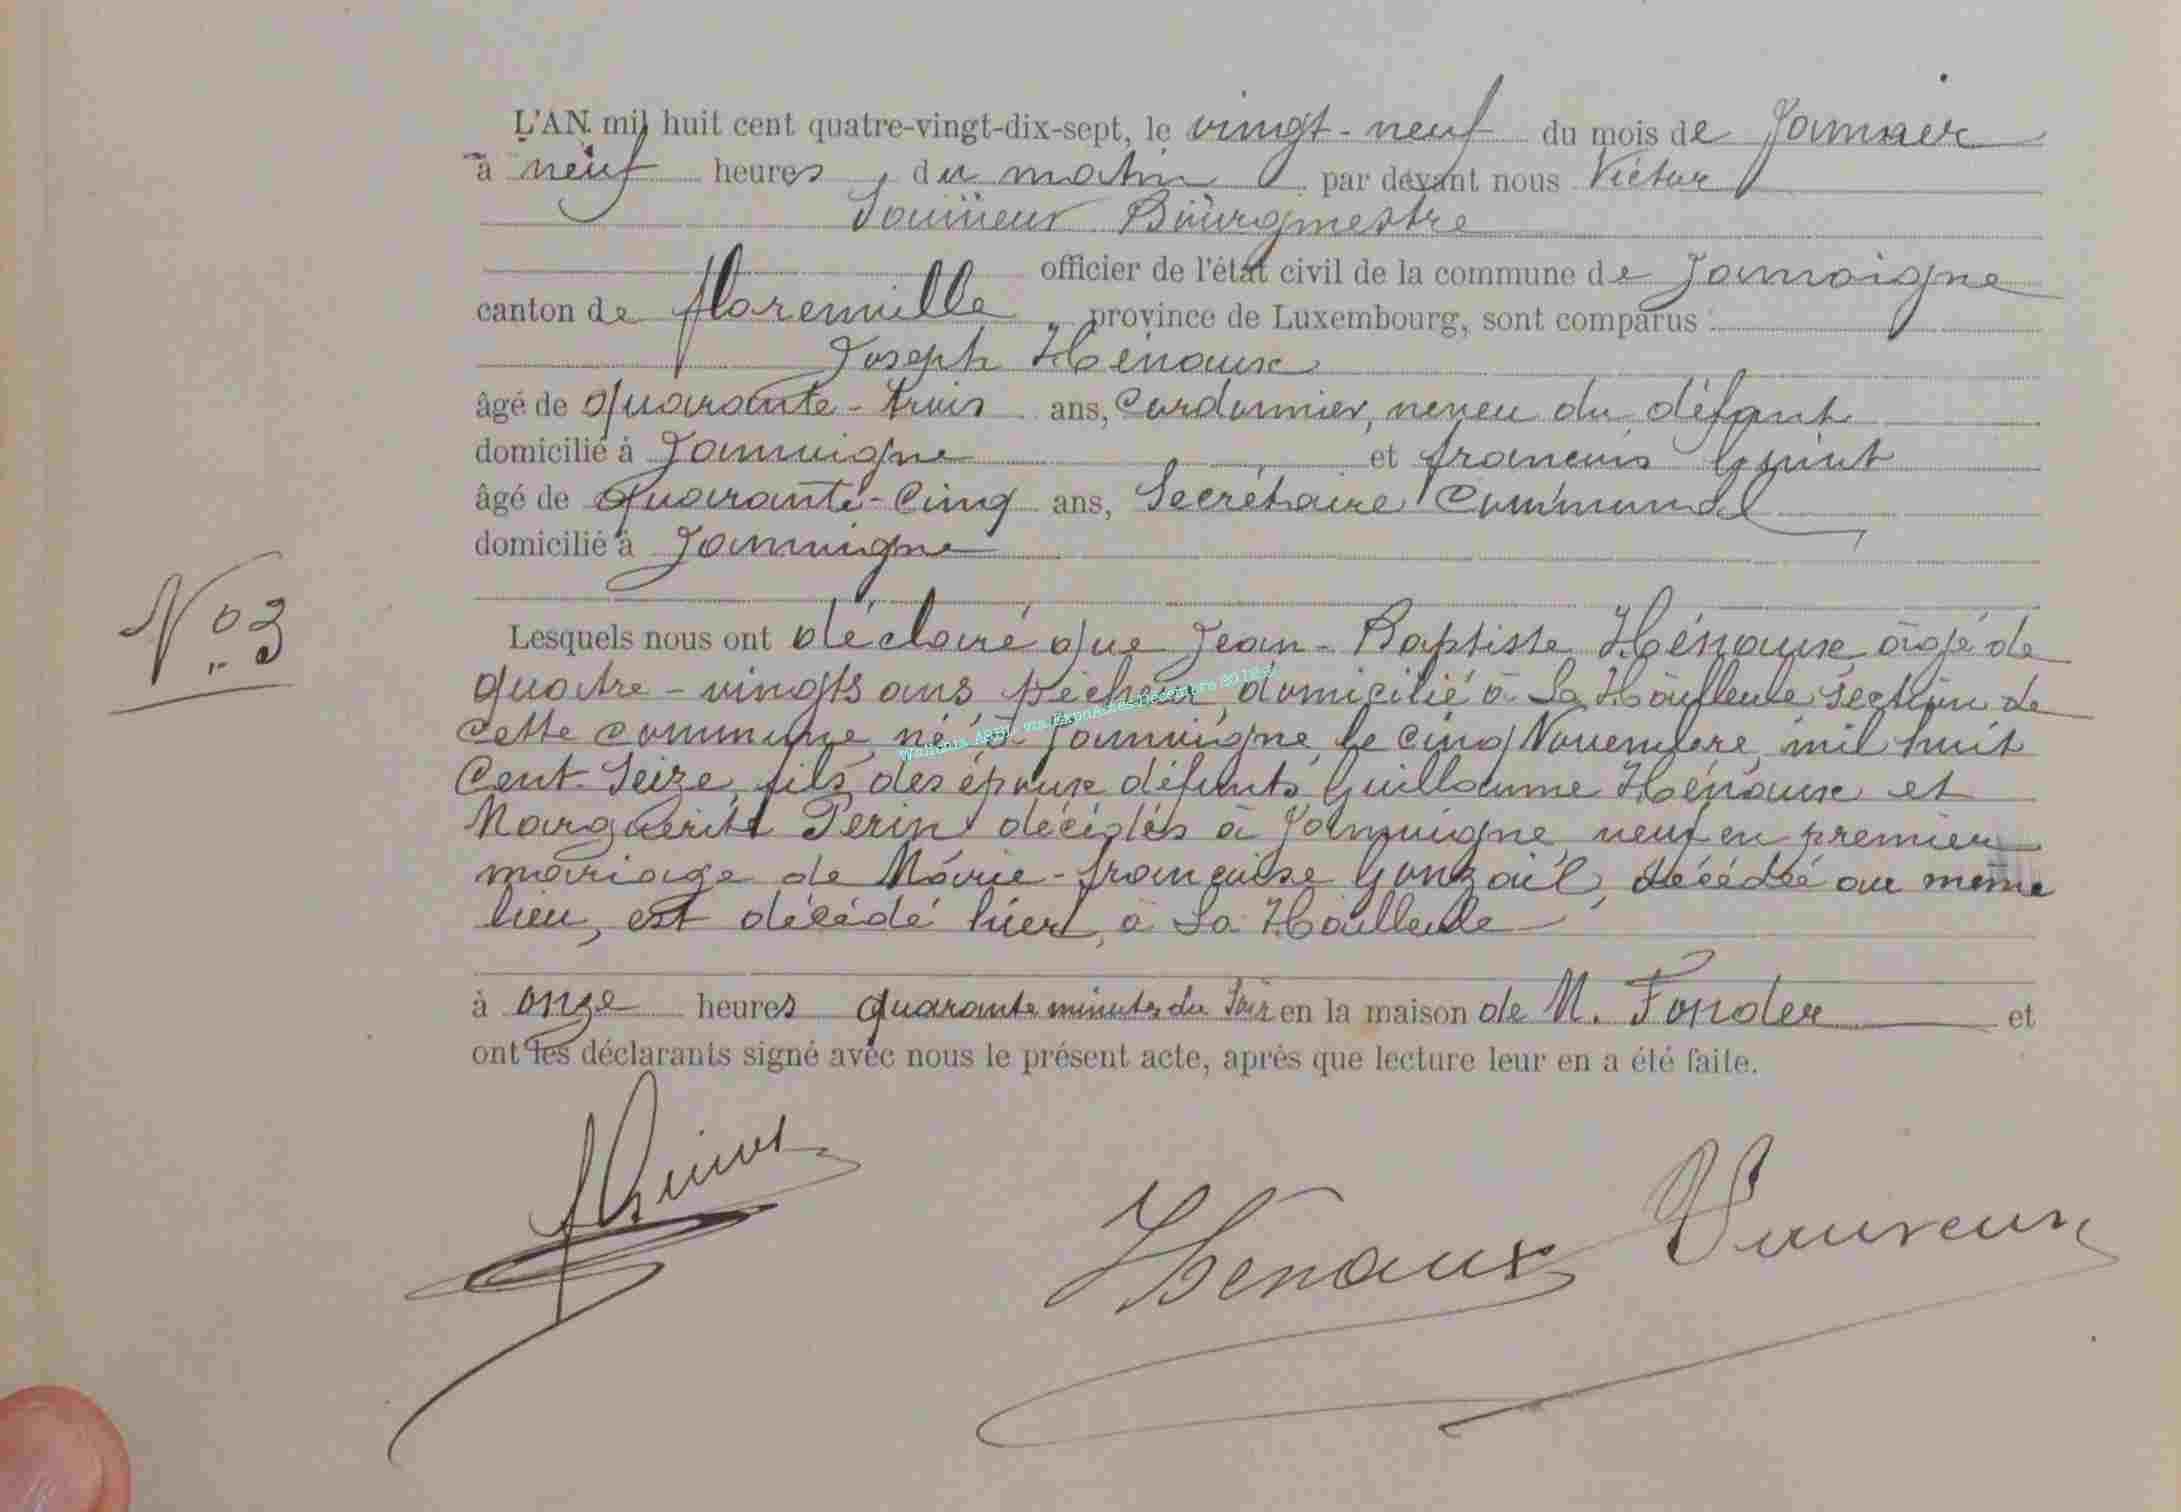 L'AN mil huit cent quatre-vingt-dix-sept, le vingt-neuf du mois de Janvier
à neuf heures du matin par devant nous Victor
Bourgmestre
officier de l'état civil de la commune de Jamoigne
canton de florenville, province de Luxembourg, sont comparus :
Joseph Hénaux
âgé de quarante-trois ans, Cordonnier, neveu du défunt
domicilié à Jamoigne et françois
âgé de quarante-cinq ans, Secrétaire Communal
domicilié à Jamoigne
N° 3
Lesquels nous ont déclaré que Jean-Baptiste Hénaux âgé de
quatre-vingts ans pêcheur, domicilié à La Hailleule section de
cette commune, né à Jamoigne, le cinq Novembre mil huit
Cent Seize, fils des époux défunts Guillaume Hénaux et
Marguerite Perin décédés à Jamoigne veuf en premier
mariage de Marie-françoise Gonzaël, décédée au même
lieu, est décédé hier, à La Hailleule
à onze heures quarante minutes du soir en la maison de M. Fonder et
ont les déclarants signé avec nous le présent acte, après que lecture leur en a été faite.
Hénaux